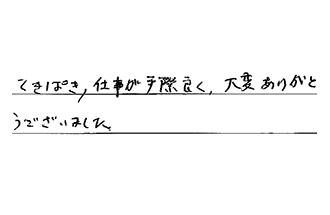 てきぱき,仕事が手際良く,大変ありがと
うございました。